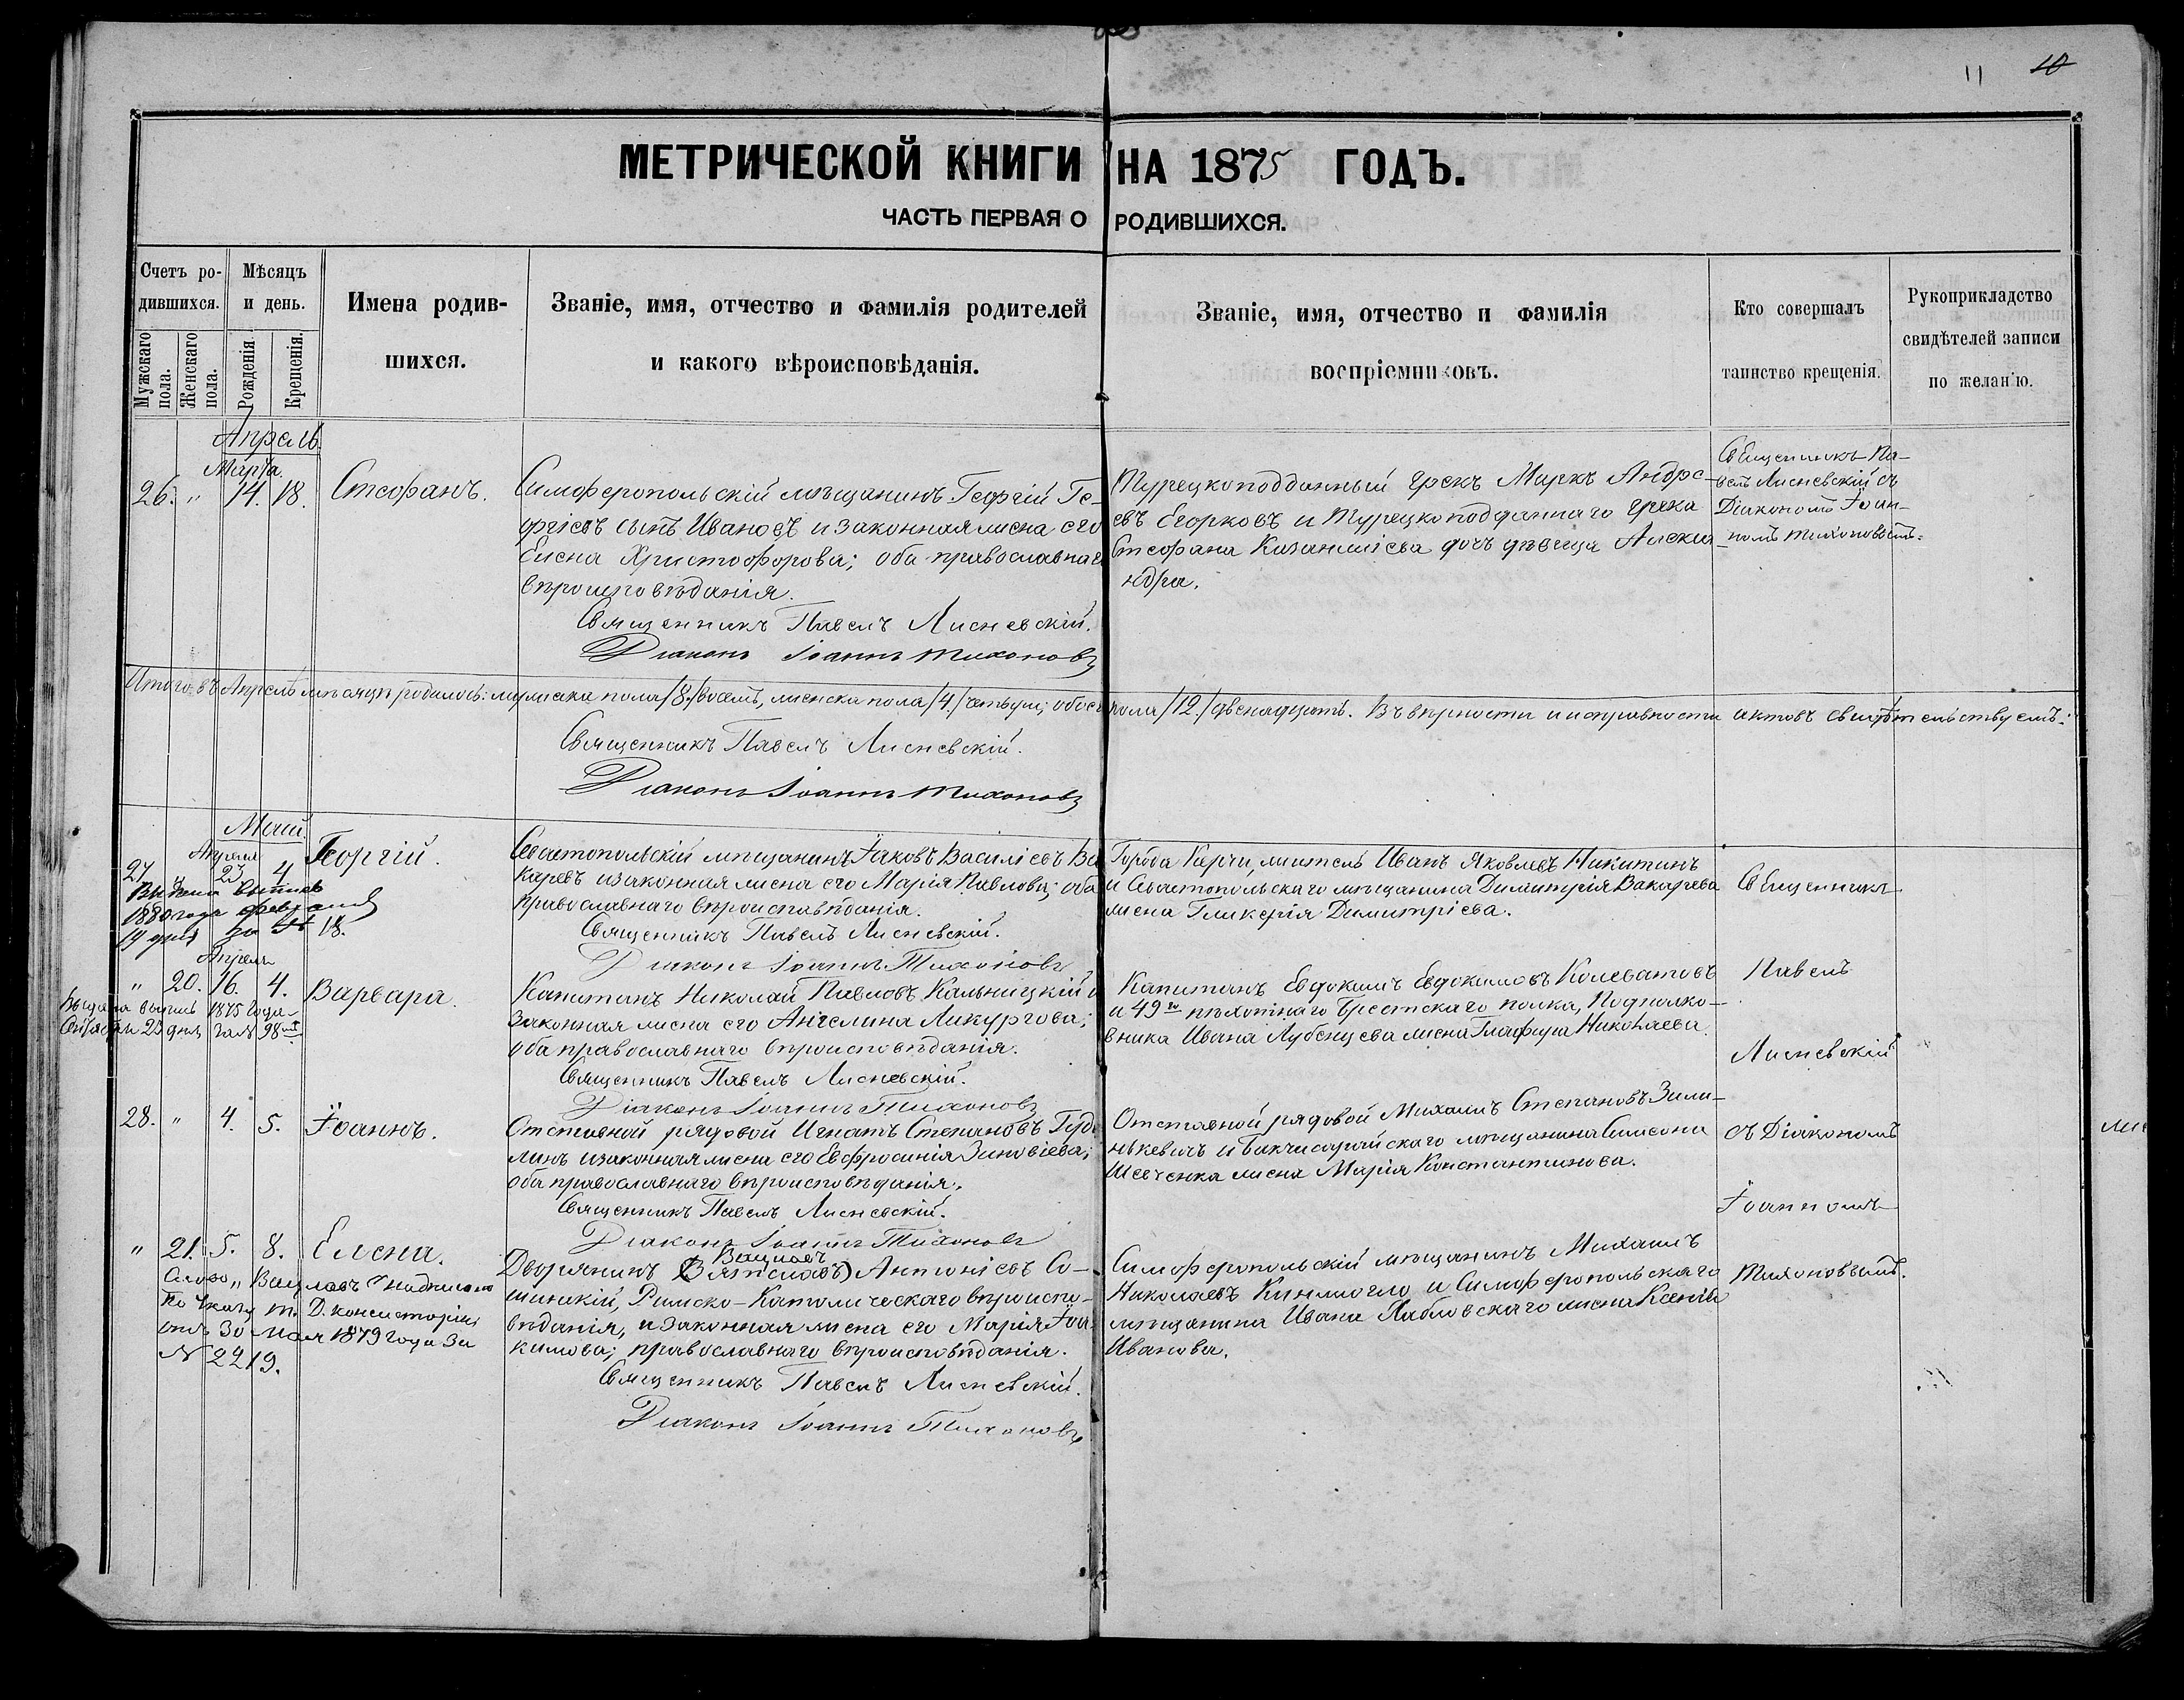 11 10
МЕТРИЧЕСКОЙ КНИГИ НА 1875 ГОДЪ.
ЧАСТЬ ПЕРВАЯ О РОДИВШИХСЯ.
Счетъ ро-
дившихся.
Мужскаго пола.
Женскаго пола.
Мѣсяцъ
и день.
Рожденія.
Крещенія.
Имена родив-
шихся.
Званіе, имя, отчество и фамилія родителей
и какого вѣроисповѣданія.
Званіе, имя, отчество и фамилія
воспріемниковъ.
Кто совершалъ
таинство крещенія.
Рукоприкладство
свидѣтелей записи
по желанію.
Апрель.
Марта.
26. " 14. 18. Стефанъ.
Симферопольскій мѣщанинъ Георгій Ге-
оргіевъ сынъ Ивановъ и законная жена его
Елена Христофорова; оба православнаго
вѣроисповѣданія.
Священникъ Павелъ Лисневскій.
Діаконъ Іоаннъ Тихоновъ
Турецкоподданный грекъ Маркъ Андре-
евъ Егорковъ и Турецкоподданнаго грека
Стефана Казанжіева дочь дѣвица Алекса-
ндра.
Священникъ Па-
велъ Лисневскій съ
Діакономъ Іоан-
номъ Тихоновымъ.
Итого въ Апрелѣ мѣсяцѣ родилось: мужеска пола /8./ восемь, женска пола /4./ четыре; обоего пола /12./ двенадцать. Въ вѣрности и исправности актовъ свидѣтельствуемъ:
Священникъ Павелъ Лисневскій.
Діаконъ Іоаннъ Тихоновъ
Май.
Апреля
27 " 23 4 Георгій.
Выдана выпись
1880 года февраля
19 дня за № 18.
Севастопольскій мѣщанинъ Іаковъ Василіевъ Ва
каревъ и законная жена его Марія Павлова; оба
православнаго вѣроисповѣданія.
Священникъ Павелъ Лисневскій.
Діаконъ Іоаннъ Тихоновъ
Города Керчи, житель Иванъ Яковлевъ Никитинъ
и Севастопольскаго мѣщанина Димитрія Вакарева
жена Гликерія Димитріева.
Апреля
" 20. 16. 4. Варвара.
Выдана выпись 1875 года
Октября 23 дня за № 98
Капитанъ Николай Павловъ Кальницкій и
законная жена его Ангелина Ликургова;
оба православнаго вѣроисповѣданія.
Священникъ Павелъ Лисневскій.
Діаконъ Іоаннъ Тихоновъ
Капитанъ Евдокимъ Евдокимовъ Колеватовъ
и 49го пѣхотнаго Брестскаго полка, Подполко-
вника Ивана Лубенцева жена Глафира Николаева.
28. " 4. 5. Іоаннъ.
Отставной рядовой Игнатъ Степановъ Гуд
линъ и законная жена его Евфросинія Зиновіева;
оба православнаго вѣроисповѣданія.
Священникъ Павелъ Лисневскій.
Діаконъ Іоаннъ Тихоновъ
Отставной рядовой Михаилъ Степановъ Зили-
нькевичъ и Бакчисарайскаго мѣщанина Симеона
Шевченка жена Марія Константинова.
" 21. 5. 8. Елена.
Слово „Вацлавъ" надписано
По указу Т. Д. консисторіи
отъ 30 мая 1879 года за
№ 2219.
Вацлавъ
Дворянинъ (Вячеславъ) Антоніевъ Со-
шинскій, Римско-Католическаго вѣроиспо-
вѣданія, и законная жена его Марія Іоа-
кимова; православнаго вѣроисповѣданія.
Священникъ Павелъ Лисневскій.
Діаконъ Іоаннъ Тихоновъ
Симферопольскій мѣщанинъ Михаилъ
Николаевъ Кинжогло и Симферопольскаго
мѣщанина Ивана Павловскаго жена Ксенія
Иванова.
Священникъ
Павелъ
Лисневскій
съ Діакономъ
Іоанномъ
Тихоновымъ.